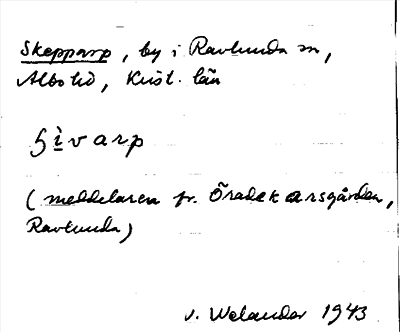 Skepparp, by i Ravlunda sn,
Albo hd, Krist. län
ʃìvarp
(meddelaren fr. Öradekarsgården,
Ravlunda)
v. Welander 1943